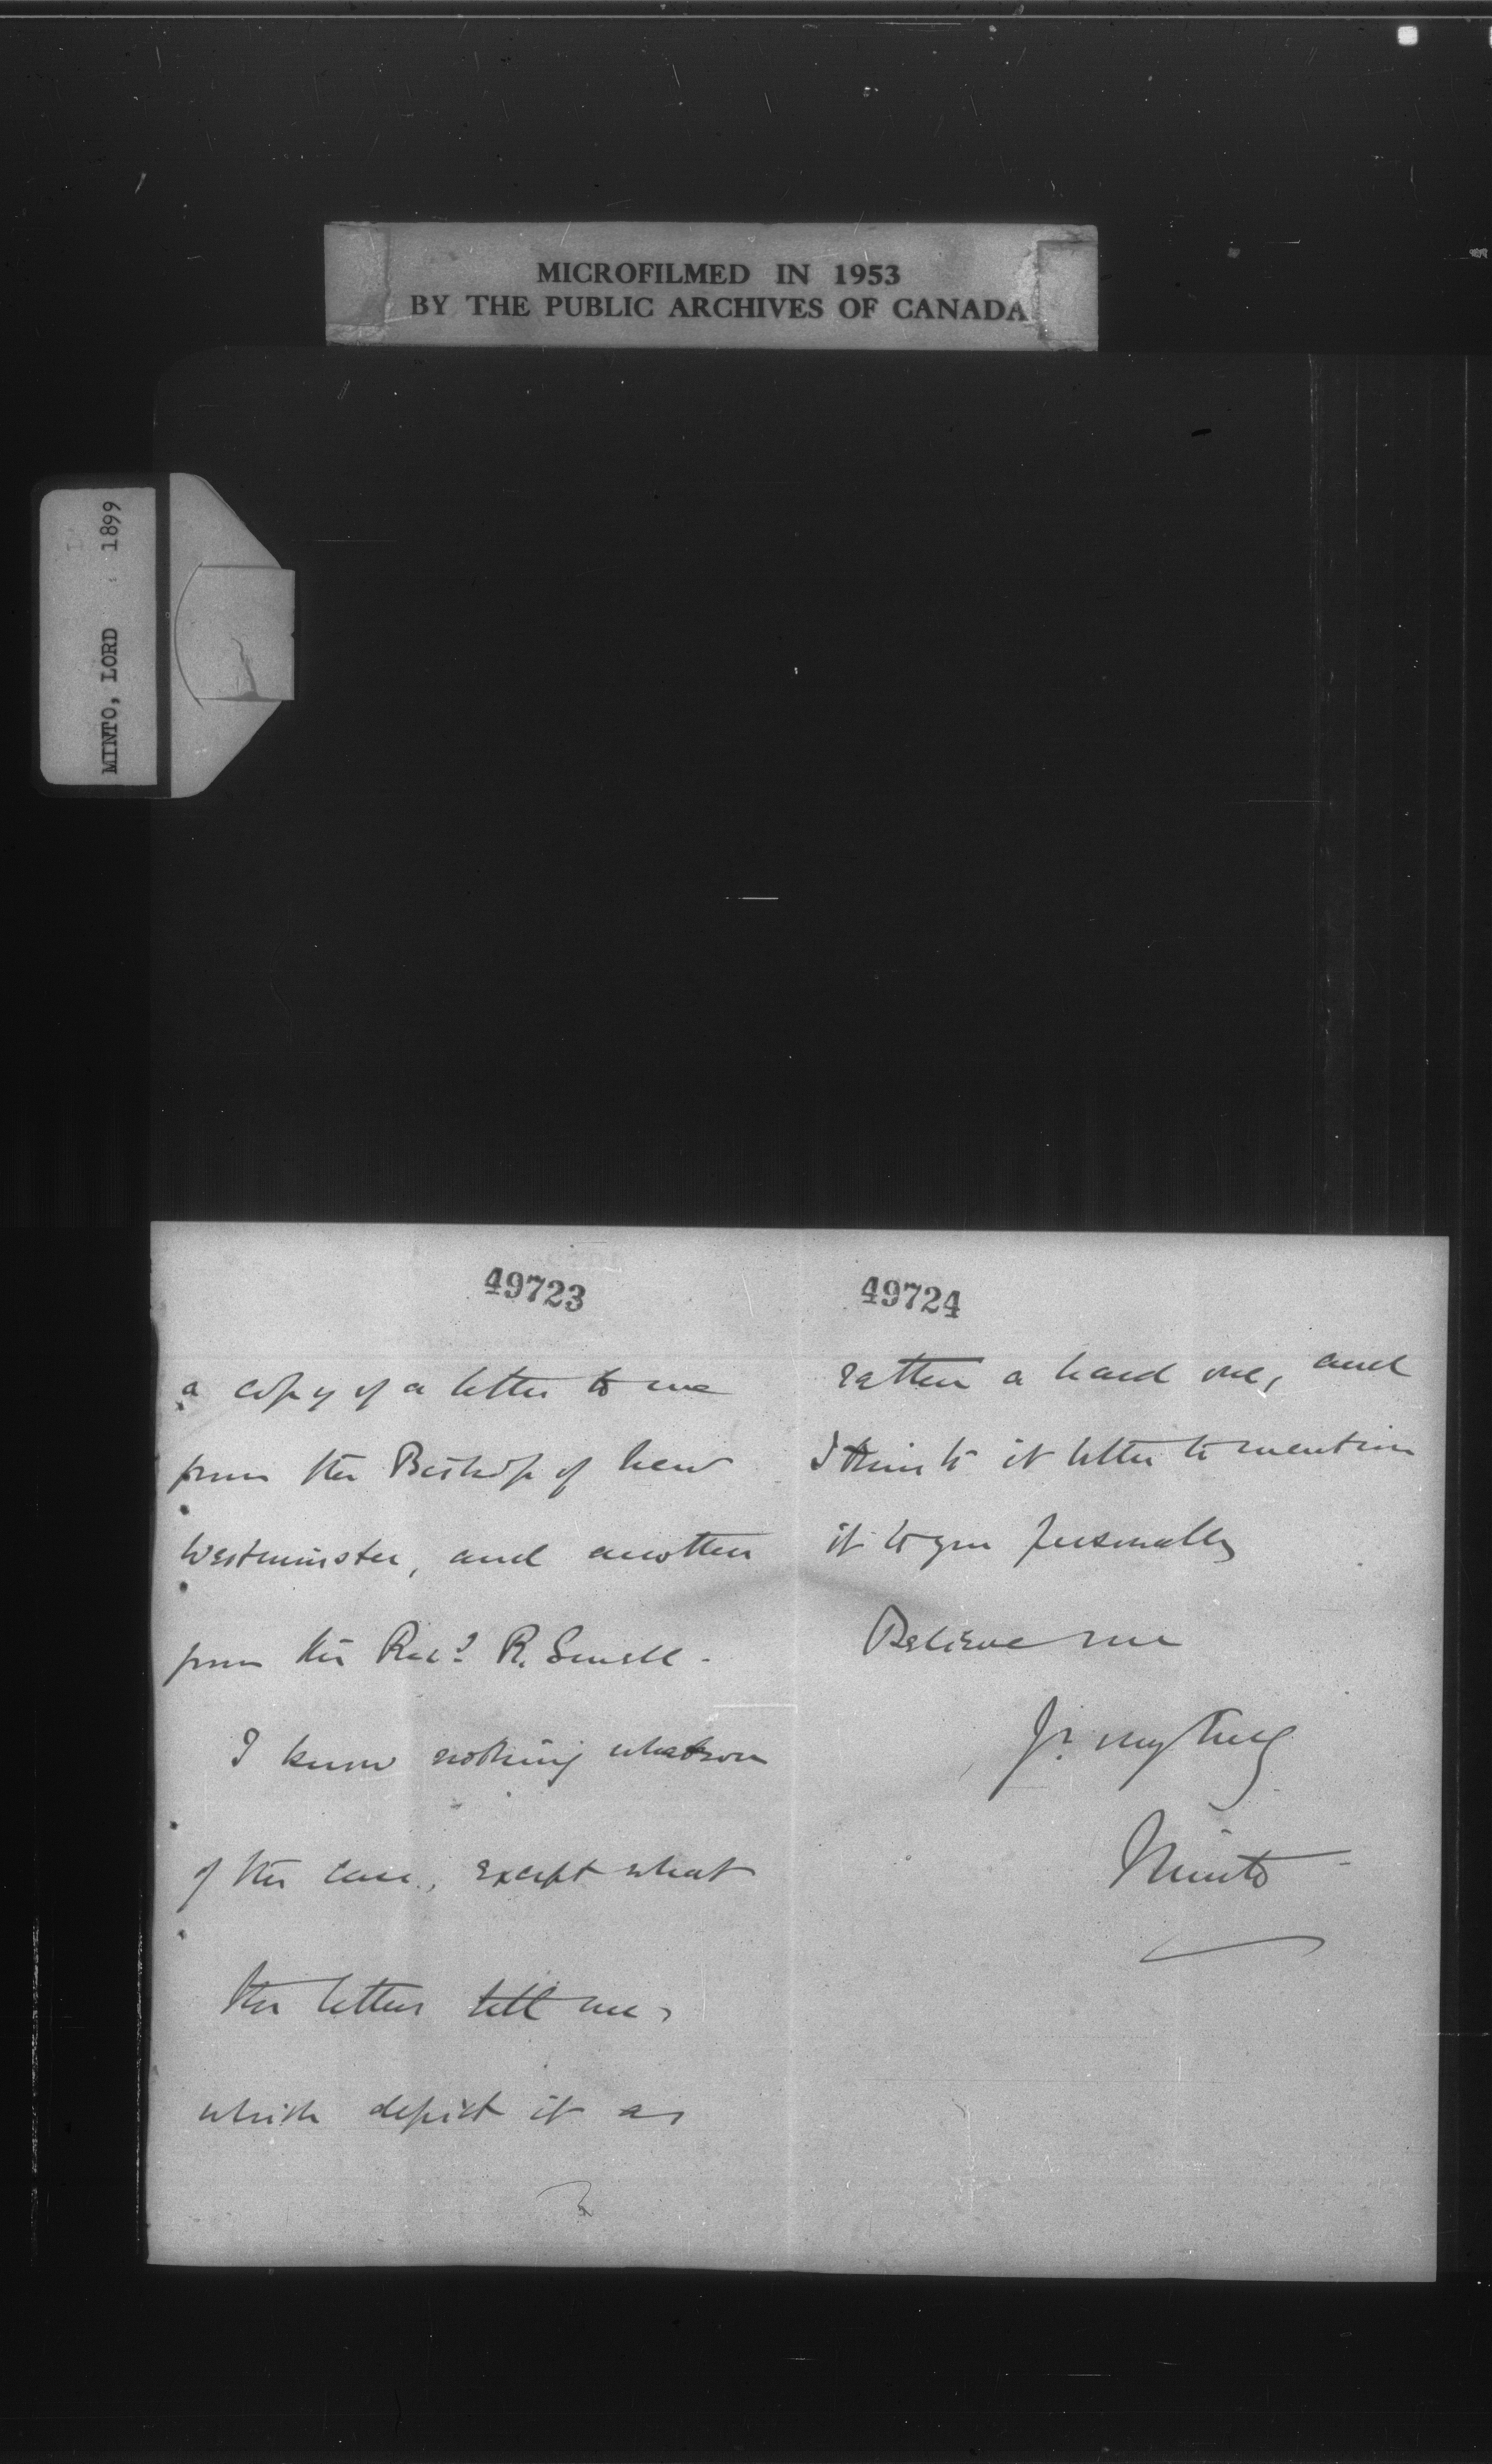 MICROFILMED IN 1953
BY THE PUBLIC ARCHIVES OF CANADA
MINTO, LORD 1899
49723
a copy of a letter to me
from the Bishop of New
Westminster, and another
from the Revd R. Small.
I know nothing whatsoever
of the case, except what
the letters tell me,
which depict it as
49724
rather a hard one, and
I think it better to mention
it to you personally
Believe me
Yrs very truly
Minto